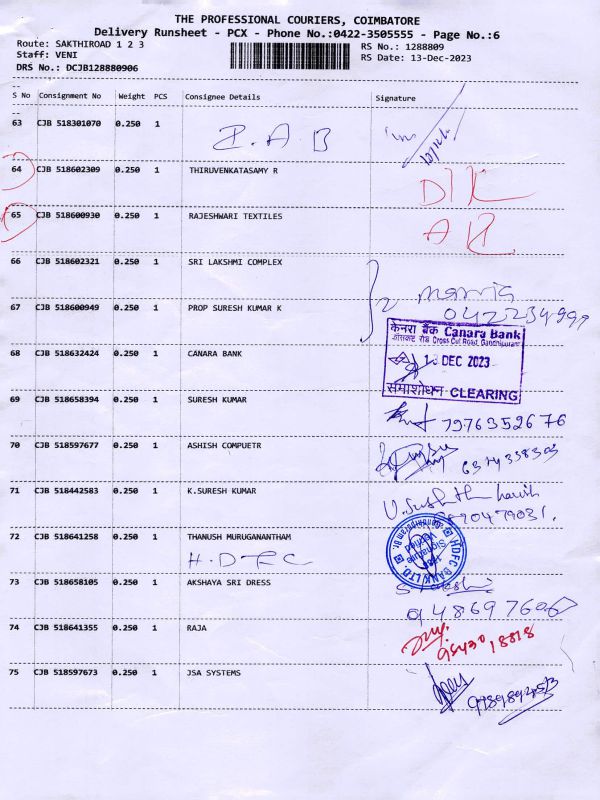 THE PROFESSIONAL COURIERS, COIMBATORE
Delivery Runsheet - PCX - Phone No.:0422-3505555 - Page No.:6
Route: SAKTHIROAD 1 2 3 RS No.: 1288809
Staff: VENI RS Date: 13-Dec-2023
DRS No.: DCJB128880906
S No Consignment No Weight PCS Consignee Details Signature
63 CJB 518301070 0.250 1
64 CJB 518602309 0.250 1 THIRUVENKATASAMY R
65 CJB 518600930 0.250 1 RAJESHWARI TEXTILES
66 CJB 518602321 0.250 1 SRI LAKSHMI COMPLEX
67 CJB 518600949 0.250 1 PROP SURESH KUMAR K
केनरा बैंक Canara Bank
Cross Cut Road, Gandhipuram
68 CJB 518632424 0.250 1 CANARA BANK DEC 2023
समाशोधन CLEARING
69 CJB 518658394 0.250 1 SURESH KUMAR 7976352676
70 CJB 518597677 0.250 1 ASHISH COMPUETR
71 CJB 518442583 0.250 1 K.SURESH KUMAR
72 CJB 518641258 0.250 1 THANUSH MURUGANANTHAM
H.DFC HDFC BANK LTD.
73 CJB 518658105 0.250 1 AKSHAYA SRI DRESS
74 CJB 518641355 0.250 1 RAJA
75 CJB 518597673 0.250 1 JSA SYSTEMS